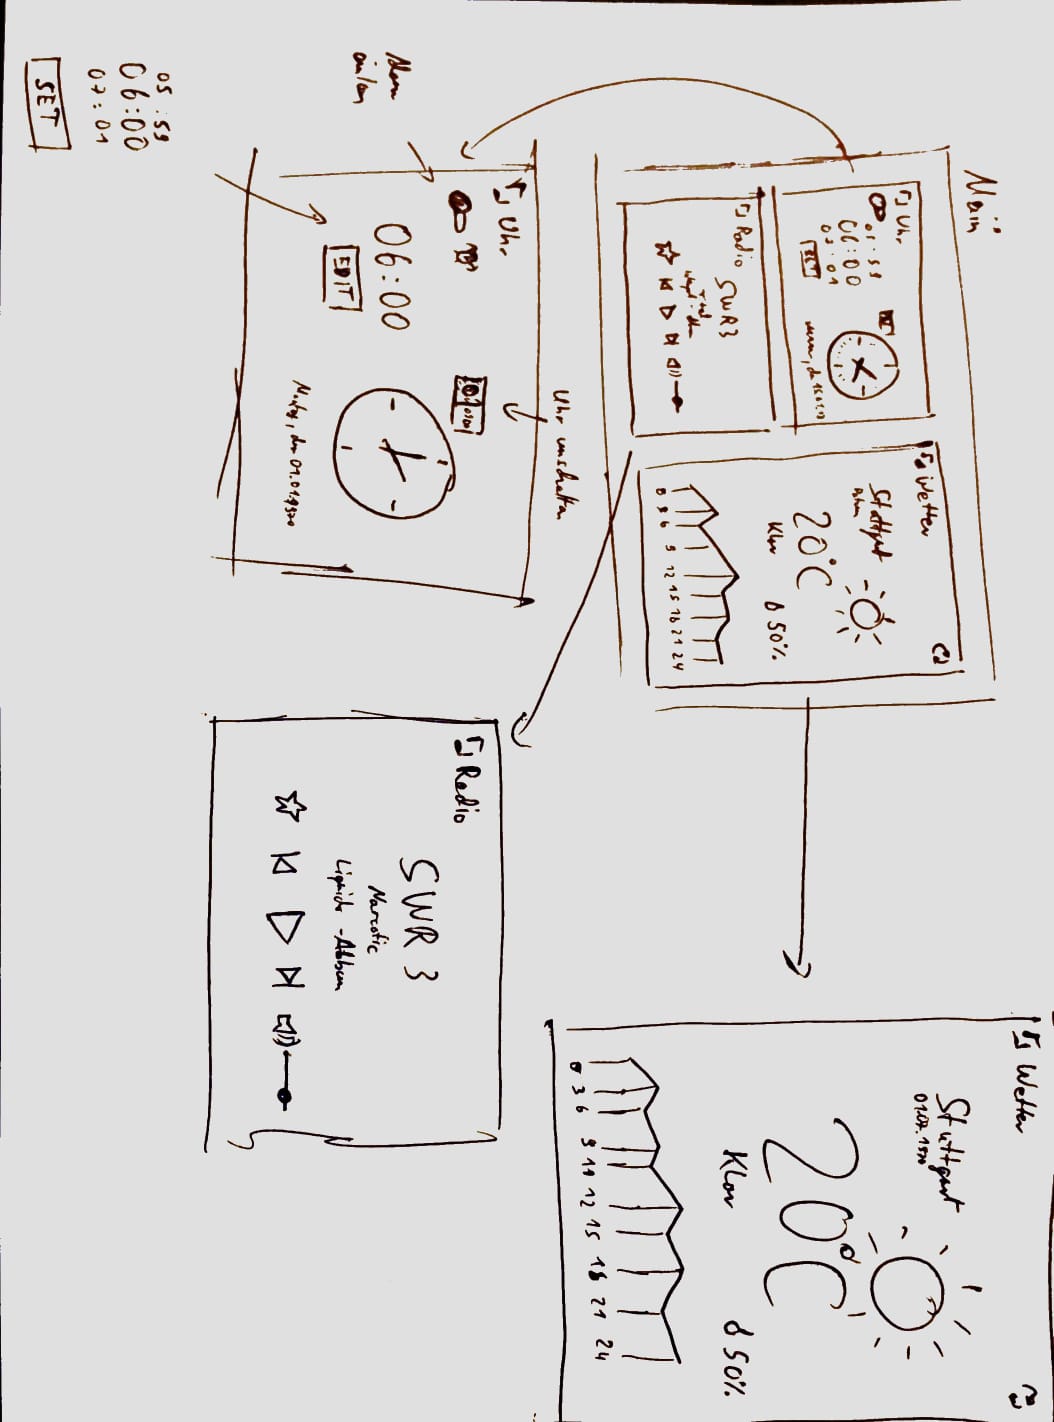 Main
Uhr
05:59
06:00
07:01
SET
Radio
SWR3
Wetter
Stuttgart
20°C
Klar
50%
0 3 6 9 12 15 18 21 24
Alarm
ein/aus
Uhr umschalten
Uhr
06:00
EDIT
Montag, den 01.01.1970
05:59
06:00
07:01
SET
Radio
SWR 3
Narcotic
Liquido - Album
Wetter
Stuttgart
01.01.1970
20°C
Klar
50%
0 3 6 9 11 12 15 18 21 24